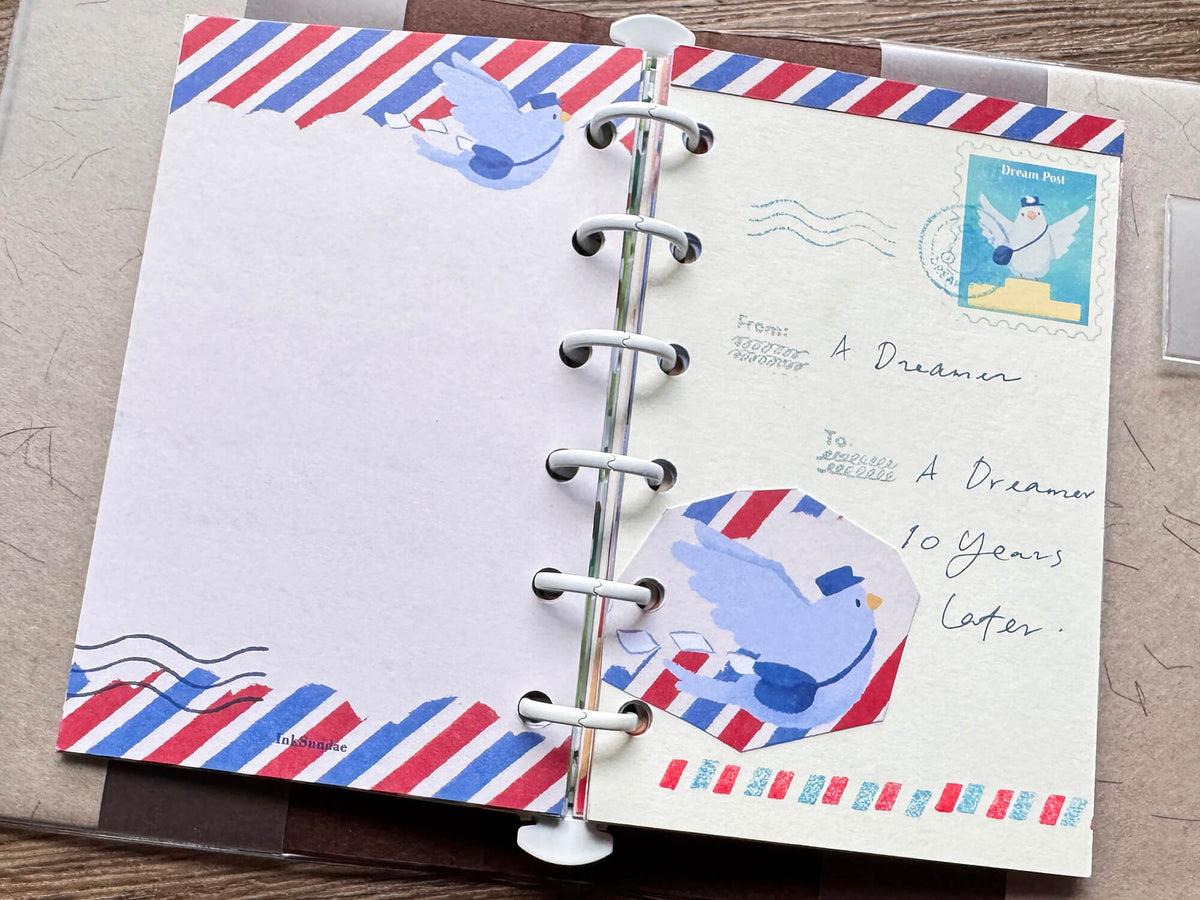 InkSundae
Dream Post
From:
A Dreamer
To:
A Dreamer
10 Years
Later.